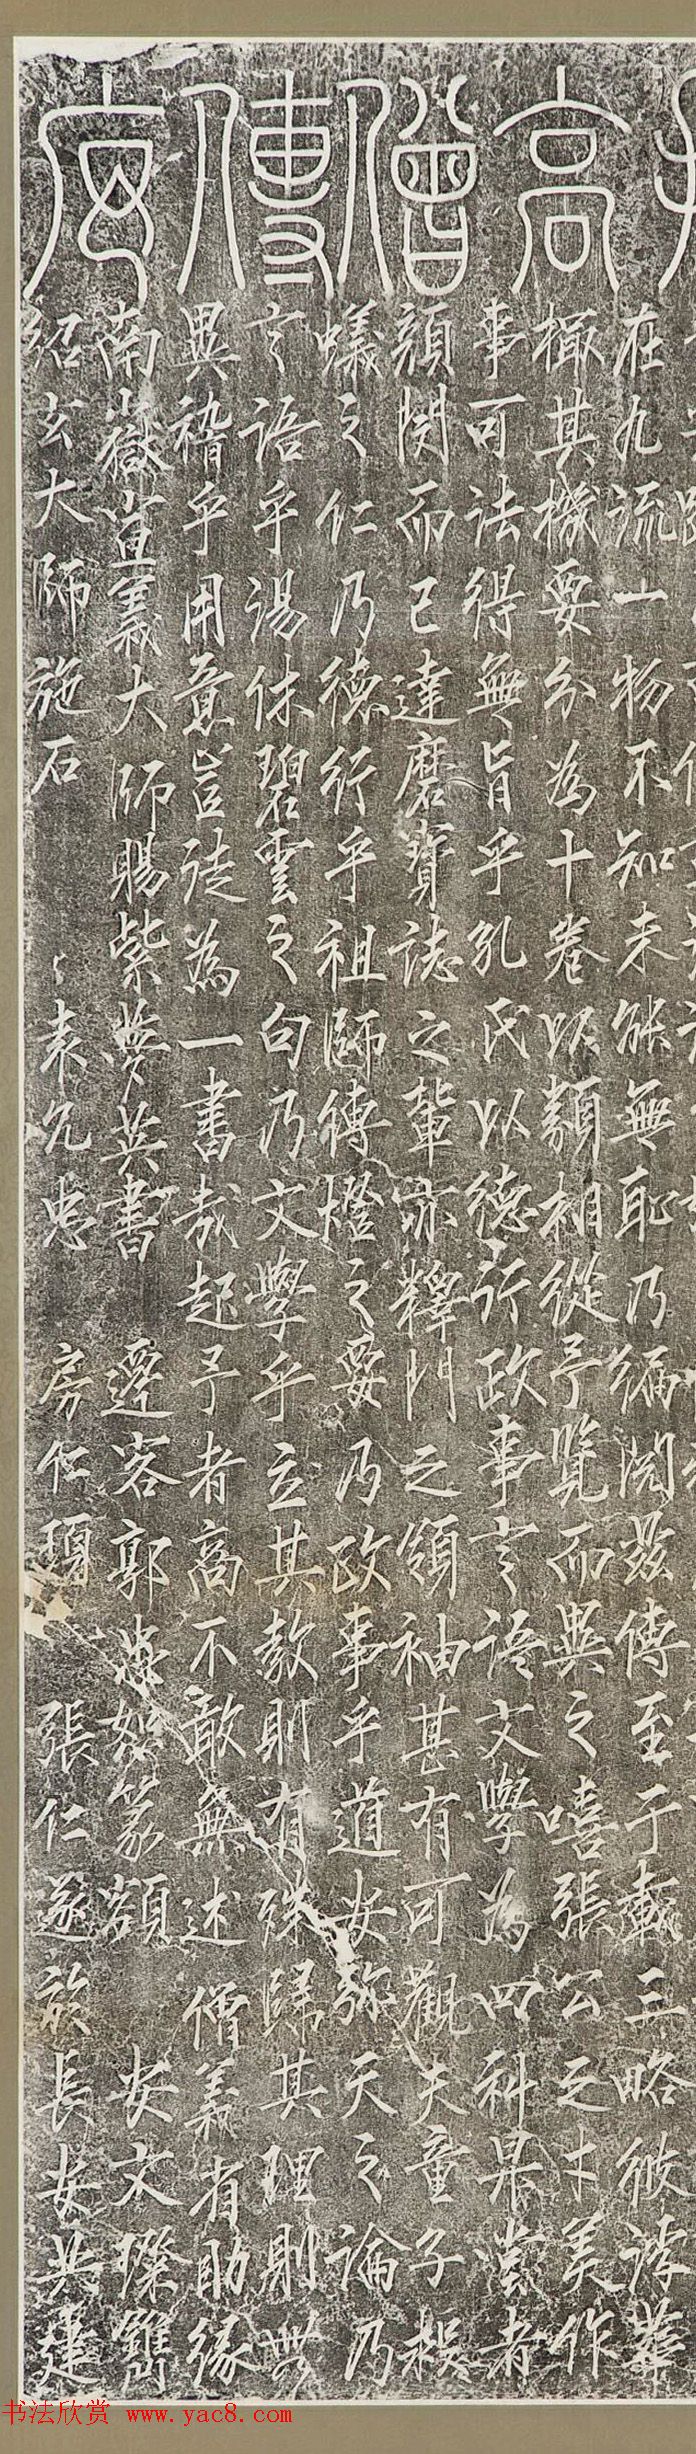 高僧傳序
在九流一物不知未能無恥乃徧閱茲傳至于載三略彼浮華
撮其機要分為十卷以類相從予覽而異之嘻張公之才美作
事可法得無旨乎孔氏以德行政事言語文學為四科果當者
顏閔而已達磨寶誌之輩亦釋門之領袖甚有可觀夫童子
蟻之仁乃德行乎祖師傳燈之要乃政事乎道安彌天之論乃
言語乎湯休碧雲之句乃文學乎立其教則有殊歸其理則無
異稽乎用意豈徒為一書哉起予者商不敢無述 僧義省助緣
南嶽宣義大師賜紫夢英書 郭忠恕篆額 安文璨鐫
紹玄大師施石 袁允忠 房仁 張仁遂 於長安共建
书法欣赏 www.yac8.com